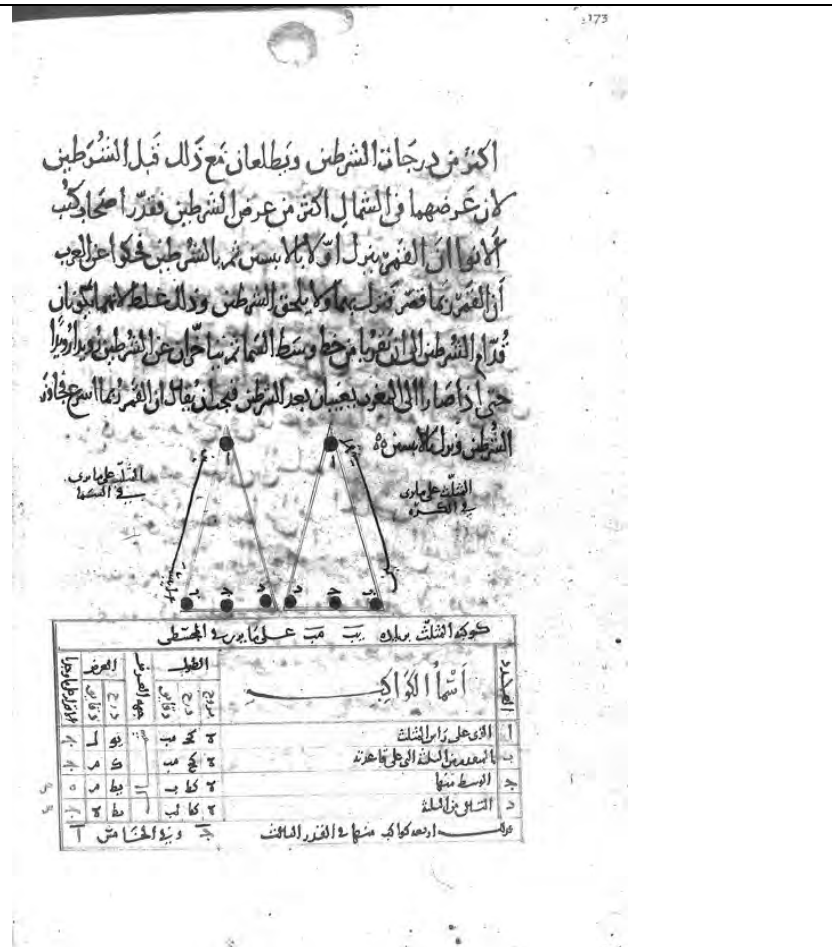 173
اكثر من درجات الشرطين ويطلعان مع ذلك قبل الشرطين
لان عرضهما في الشمال اكثر من عرض الشرطين فقدر اصحاب كتب
الانوا ان القمر ينزل اولا بالانيسين ثم بالشرطين فحكوا عن العرب
ان القمر ربما قصر فنزل بهما ولا يلحق الشرطين وذلك غلط لانهما يكونان
قدام الشرطين الى ان يقربا من خط وسط السما ثم يتاخران عن الشرطين رويدا رويدا
حتى اذا صارا الى المغرب يغيبان بعد الشرطين فيجب ان يقال ان القمر ربما اسرع فجاوز
الشرطين ونزل بالانيسين
المثلث على ما يرى
في الكرة
المثلث على ما يرى
في السما
ا
ا
ب ج د
د ج ب
كوكبة المثلث بزيادة يب مب على ما يوجد في المجسطي
العدد اسما الكواكب الطول جهة العرض العرض
بروج درج دقايق درج دقايق
ا الذي على راس المثلث
ب المتقدم من الثلثة التي على قاعدته
ج الاوسط منها
د التالي من الثلثة
فذلك اربعة كواكب منها في القدر الثالث ج وفي الخامس ا